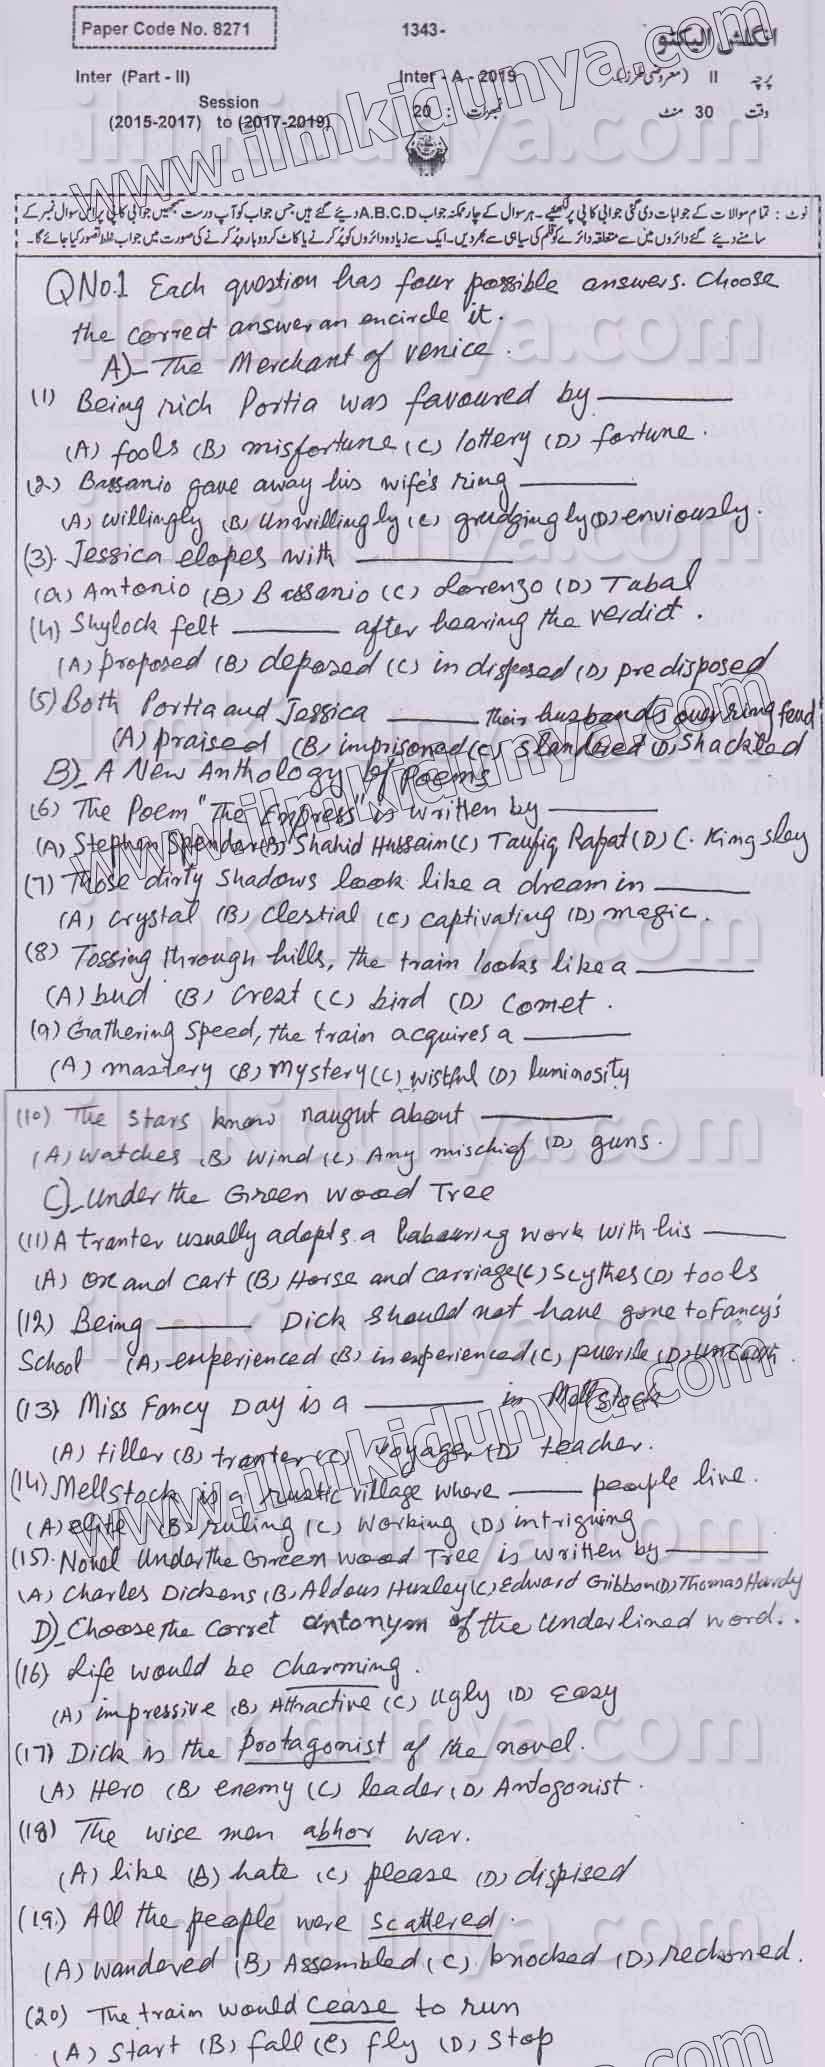 Paper Code No. 8271
1343-
انگلش الیکٹو
Inter (Part - II)
Inter - A - 2019
پرچہ II (معروضی طرز)
Session
(2015-2017) to (2017-2019)
20 :
وقت 30 منٹ
www.ilmkidunya.com
نوٹ : تمام سوالات کے جوابات دی گئی جوابی کاپی پر لکھیے۔ ہر سوال کے چار ممکنہ جواب A.B.C.D دیئے گئے ہیں جس جواب کو آپ درست سمجھیں جوابی کاپی پر اس سوال نمبر کے
سامنے دیئے گئے دائروں میں سے متعلقہ دائرے کو قلم کی سیاہی سے بھر دیں۔ ایک سے زیادہ دائروں کو پُر کرنے یا کاٹ کر دوبارہ پُر کرنے کی صورت میں جواب غلط تصور کیا جائے گا۔
QNo.1 Each question has four possible answers. Choose
the correct answer an encircle it.
A)- The Merchant of Venice.
(1) Being rich Portia was favoured by ______
(A) fools (B) misfortune (C) lottery (D) fortune.
(2) Bassanio gave away his wife's ring ______
(A) willingly (B) Unwillingly (C) grudgingly (D) enviously.
(3). Jessica elopes with ______
(a) Antonio (B) Bassanio (C) Lorenzo (D) Tabal
(4) Shylock felt ______ after hearing the verdict.
(A) proposed (B) deposed (C) indisposed (D) predisposed
(5) Both Portia and Jessica ______ their husbands over ring feud
(A) praised (B) imprisoned (C) slandered (D) Shackled
B)- A New Anthology of Poems
(6) The Poem "The Empress" is written by ______
(A) Stephen Spender (B) Shahid Hussain (C) Taufiq Rafat (D) C. Kingsley
(7) Those dirty Shadows look like a dream in ______
(A) Crystal (B) Clestial (C) captivating (D) magic.
(8) Tossing through hills, the train looks like a ______
(A) bud (B) Crest (C) bird (D) Comet.
(9) Gathering Speed, the train acquires a ______
(A) mastery (B) Mystery (C) wistful (D) luminosity
(10) The stars know naught about ______
(A) Watches (B) Wind (C) Any mischief (D) guns.
C)- Under the Green Wood Tree
(11) A tranter usually adopts a labouring work with his ______
(A) Ox and cart (B) Horse and carriage (C) Scythes (D) tools
(12) Being ______ Dick should not have gone to Fancy's
School (A) experienced (B) inexperienced (C) puerile (D) Uncouth
(13) Miss Fancy Day is a ______ in Mellstock
(A) tiller (B) tranter (C) Voyager (D) teacher.
(14) Mellstock is a rustic village where ______ people live.
(A) elite (B) ruling (C) Working (D) intriguing
(15). Novel Under the Green Wood Tree is written by ______
(A) Charles Dickens (B) Aldous Huxley (C) Edward Gibbon (D) Thomas Hardy
D)- Choose the Corret antonym of the Underlined word..
(16) Life would be charming.
(A) impressive (B) Attractive (C) Ugly (D) Easy
(17) Dick is the Protagonist of the novel.
(A) Hero (B) enemy (C) leader (D) Antogonist.
(18) The wise men abhor war.
(A) like (B) hate (C) please (D) dispised
(19) All the people were scattered.
(A) Wandered (B) Assembled (C) knocked (D) reckoned.
(20) The train would Cease to run
(A) Start (B) fall (C) fly (D) Stop